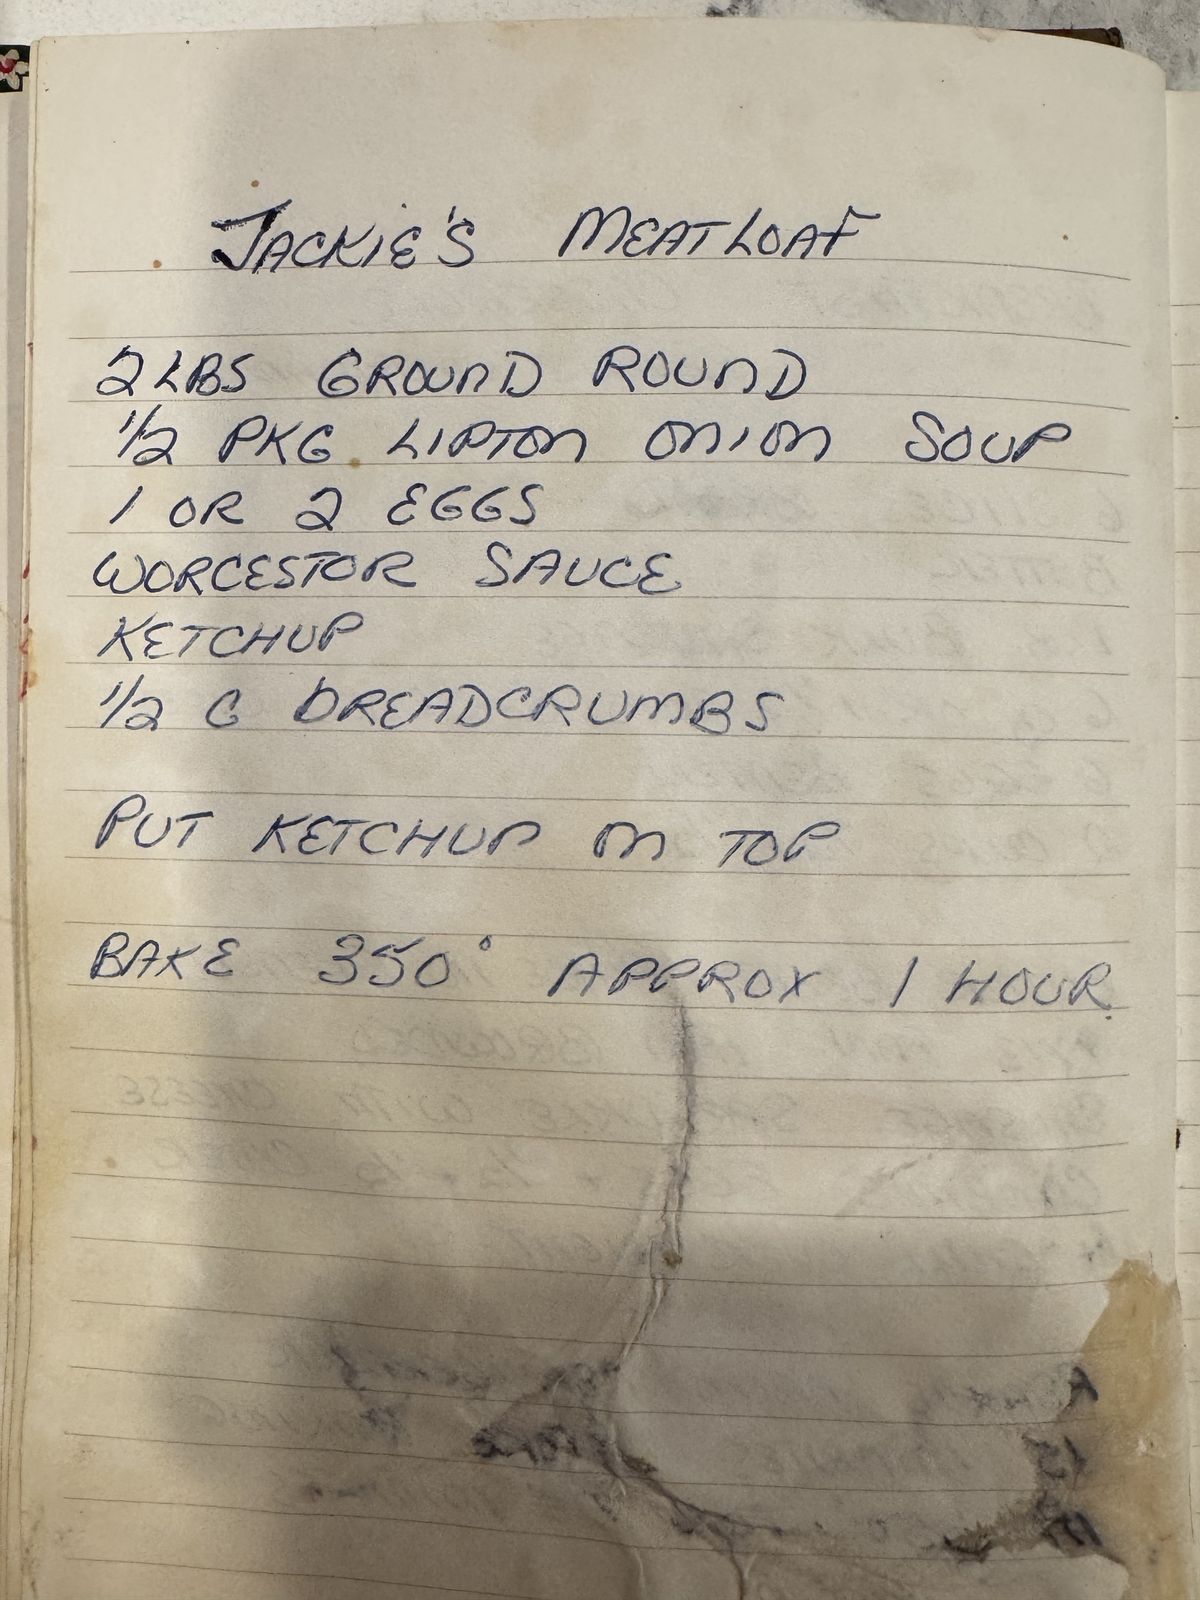 JACKIE'S MEATLOAF
2 LBS GROUND ROUND
1/2 PKG LIPTON ONION SOUP
1 OR 2 EGGS
WORCESTOR SAUCE
KETCHUP
1/2 C BREADCRUMBS
PUT KETCHUP ON TOP
BAKE 350° APPROX 1 HOUR.